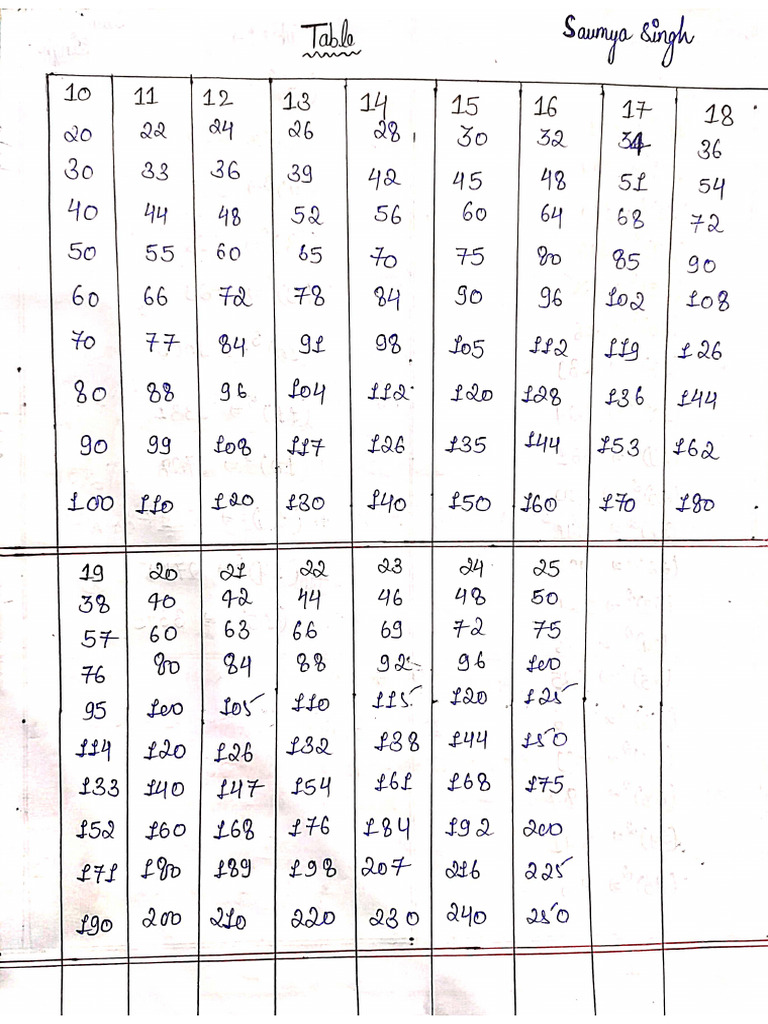 Table Saumya Singh
10 11 12 13 14 15 16 17 18
20 22 24 26 28 30 32 34 36
30 33 36 39 42 45 48 51 54
40 44 48 52 56 60 64 68 72
50 55 60 65 70 75 80 85 90
60 66 72 78 84 90 96 102 108
70 77 84 91 98 105 112 119 126
80 88 96 104 112 120 128 136 144
90 99 108 117 126 135 144 153 162
100 110 120 130 140 150 160 170 180
19 20 21 22 23 24 25
38 40 42 44 46 48 50
57 60 63 66 69 72 75
76 80 84 88 92 96 100
95 100 105 110 115 120 125
114 120 126 132 138 144 150
133 140 147 154 161 168 175
152 160 168 176 184 192 200
171 180 189 198 207 216 225
190 200 210 220 230 240 250